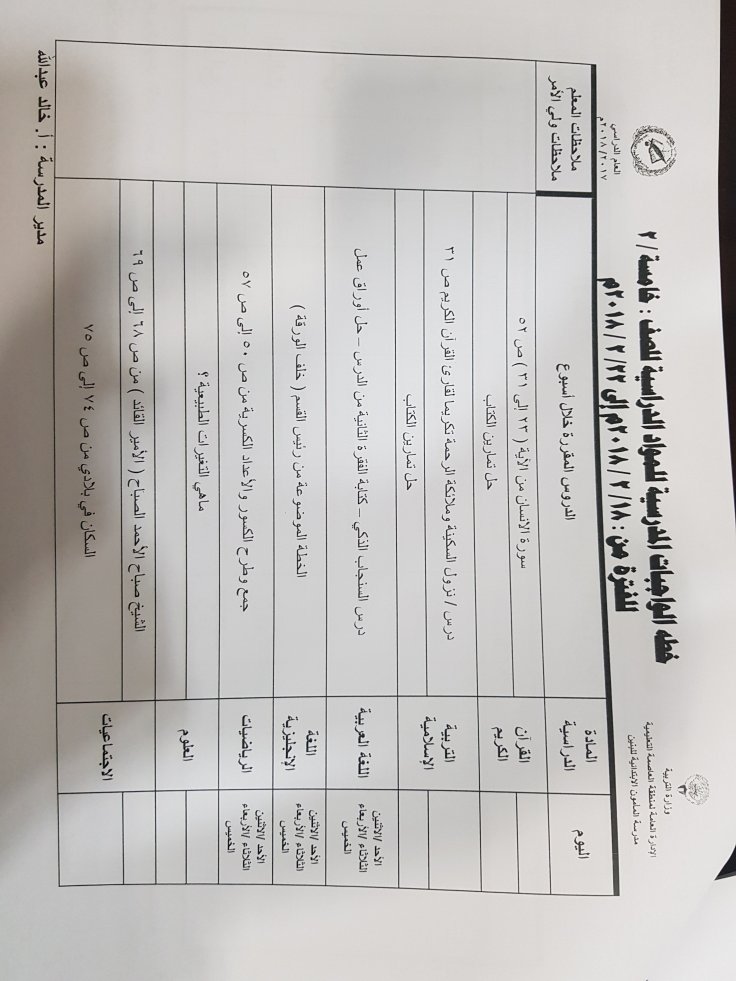 وزارة التربية
الإدارة العامة لمنطقة العاصمة التعليمية
مدرسة المأمون الابتدائية للبنين
خطه الواجبات المدرسية للمواد الدراسية للصف : خامسة / ٢
للفترة من : ١٨ / ٢ / ٢٠١٨م إلى ٢٢ / ٢ / ٢٠١٨م
العام الدراسي
٢٠١٨/٢٠١٧م
اليوم
المادة الدراسية
الدروس المقررة خلال أسبوع
ملاحظات المعلم
ملاحظات ولي الأمر
القرآن الكريم
سورة الانسان من الآية ( ٢٣ إلى ٣١ ) ص ٥٢
حل تمارين الكتاب
التربية الإسلامية
درس / نزول السكينة وملائكة الرحمة تكريما لقارئ القرآن الكريم ص ٣١
حل تمارين الكتاب
الأحد /الاثنين
الثلاثاء /الأربعاء
اللغة العربية
درس السنجاب الذكي – كتابة الفقرة الثانية من الدرس – حل أوراق عمل
الأحد /الاثنين
الثلاثاء /الأربعاء
الخميس
اللغة الإنجليزية
الخطة الموضوعة من رئيس القسم ( خلف الورقة )
الأحد /الاثنين
الثلاثاء /الأربعاء
الخميس
الرياضيات
جمع وطرح الكسور والأعداد الكسرية من ص ٥٠ إلى ص ٥٧
العلوم
ماهي التغيرات الطبيعية ؟
الاجتماعيات
الشيخ صباح الأحمد الصباح ( الأمير القائد ) من ص ٦٨ إلى ص ٦٩
السكان في بلادي من ص ٧٤ إلى ص ٧٥
مدير المدرسة : أ. خالد عبدالله